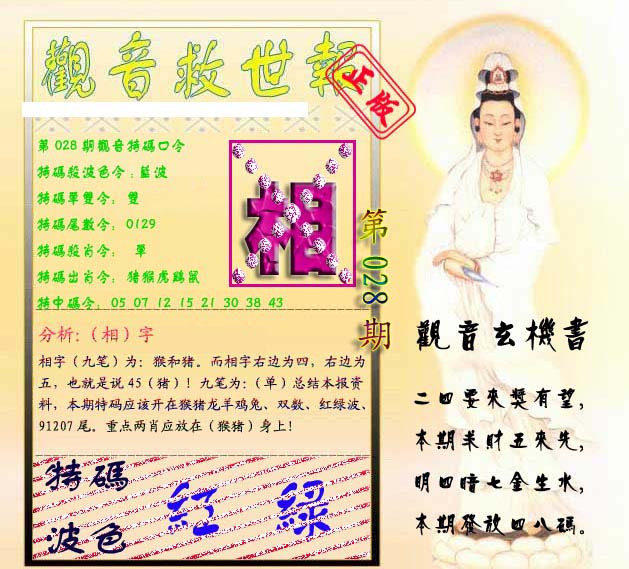 觀音救世報
正版
第028期觀音特碼口令
特碼殺波色令:藍波
特碼單雙令: 雙
特碼尾數令: 0129
特碼殺肖令: 單
特碼出肖令: 豬猴虎鷄鼠
特中碼令: 05 07 12 15 21 30 38 43
相
第028期
分析:（相）字
相字（九笔）为：猴和猪。而相字右边为四，右边为
五，也就是说45（猪）！九笔为：（单）总结本报资
料，本期特码应该开在猴猪龙羊鸡兔、双数、红绿波、
91207尾。重点两肖应放在（猴猪）身上！
特碼
波色
紅 綠
觀音玄機書
二四要來獎有望，
本期羊財五來先，
明四暗七金生水，
本期發放四八碼。